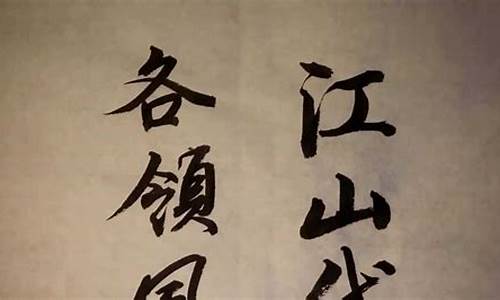 江山代
各領風